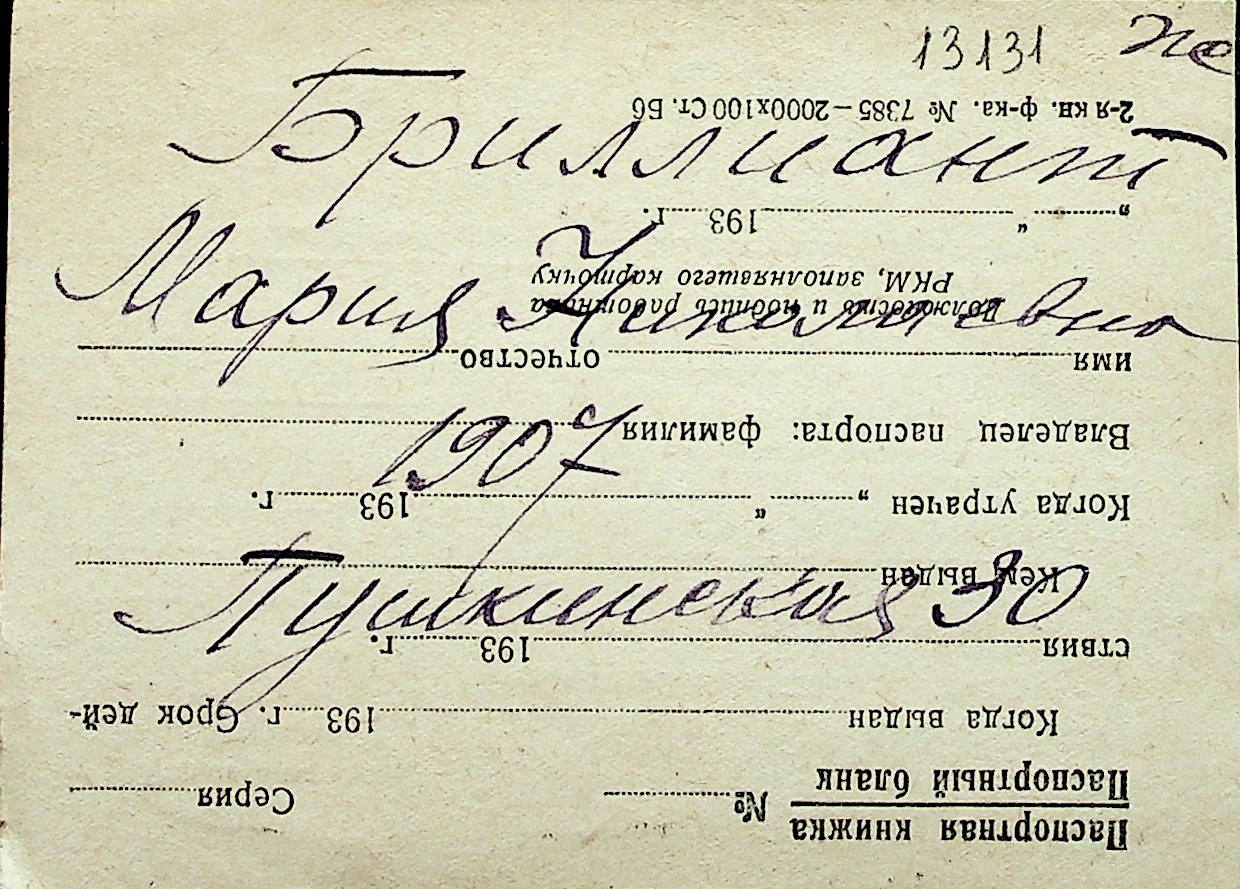 13131 же
Бриллиант
Мария Николаевна
1907
Пушкинская 30
Паспортная книжка
Паспортный бланк
№ Серия
Когда выдан 193 г. Срок дей-
ствия 193 г.
Кем выдан
Когда утрачен „ “ 193 г.
Владелец паспорта: фамилия
имя отчество
Должность и подпись работника
РКМ, заполнявшего карточку
„ “ 193 г.
2-я кн. ф-ка. № 7385—2000х100 Ст. Бб